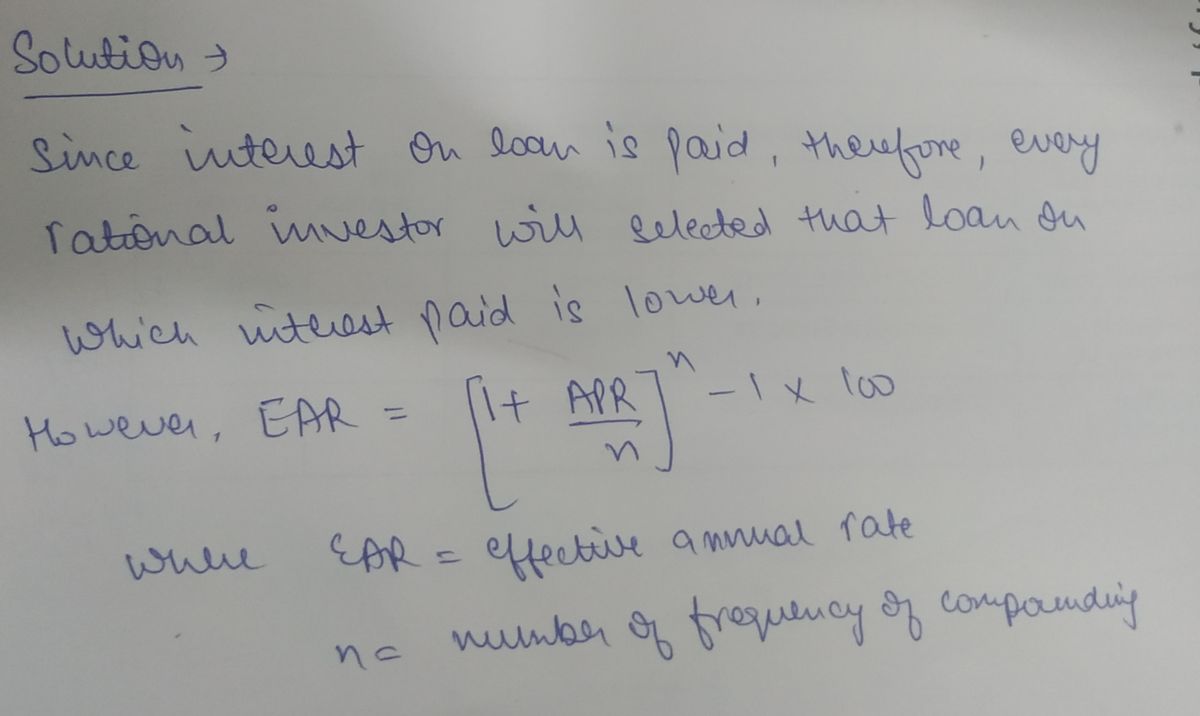 Solution →
Since interest on loan is paid, therefore, every
rational investor will selected that loan on
which interest paid is lower.
However, EAR = [1+ APR/n]^n - 1 x 100
where EAR = effective annual rate
n = number of frequency of compounding